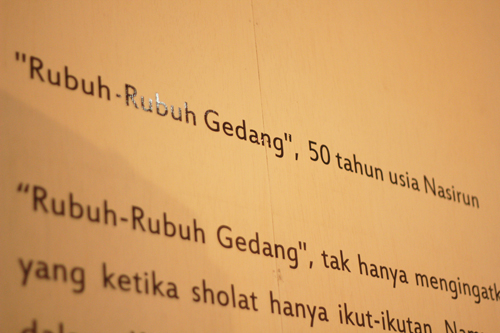 "Rubuh-Rubuh Gedang", 50 tahun usia Nasirun
“Rubuh-Rubuh Gedang", tak hanya mengingatk
yang ketika sholat hanya ikut-ikutan. Nam